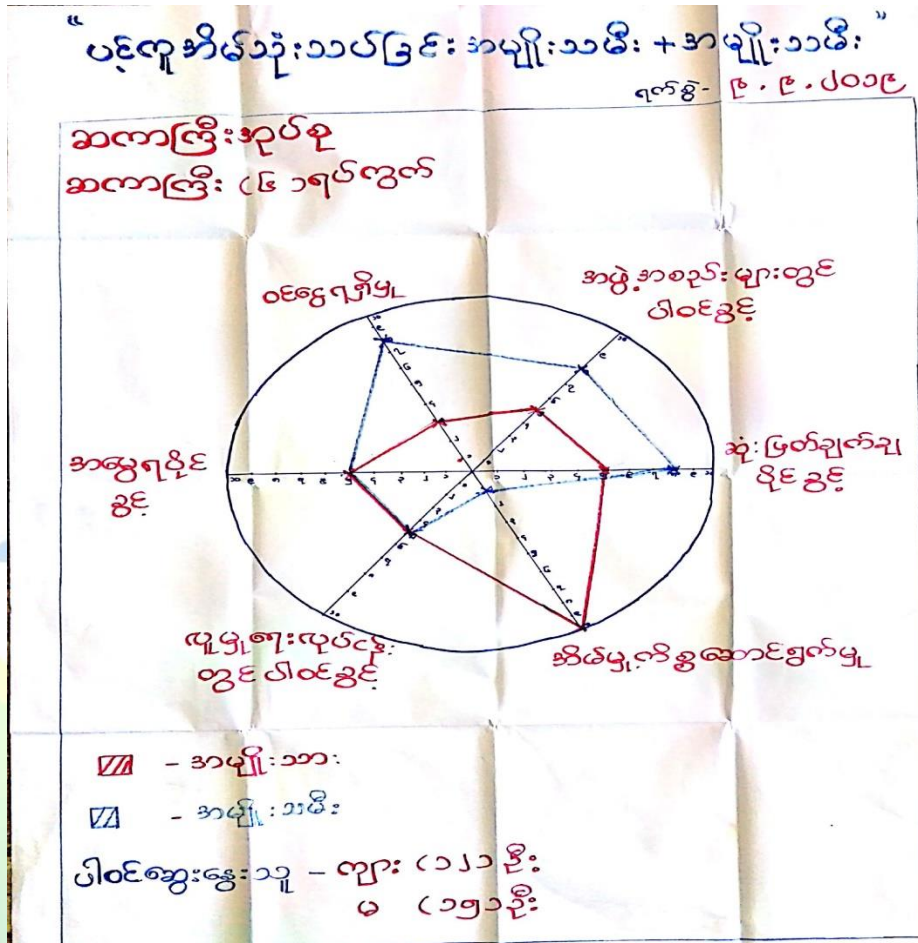 "ပင့်ကူအိမ်သုံးသပ်ခြင်း အမျိုးသမီး + အမျိုးသမီး"
ရက်စွဲ - ၉ . ၉ . ၂၀၁၉
ဆကာကြီးအုပ်စု
ဆကာကြီး (၆) ရပ်ကွက်
ဝင်ငွေရရှိမှု
အဖွဲ့အစည်းများတွင်
ပါဝင်ခွင့်
ဆုံးဖြတ်ချက်ချ
ပိုင်ခွင့်
အမွေရပိုင်
ခွင့်
လူမှုရေးလုပ်ငန်း
တွင် ပါဝင်ခွင့်
အိမ်မှုကိစ္စဆောင်ရွက်မှု
- အမျိုးသား
- အမျိုးသမီး
ပါဝင်ဆွေးနွေးသူ - ကျား (၁၂) ဦး
မ (၁၅) ဦး